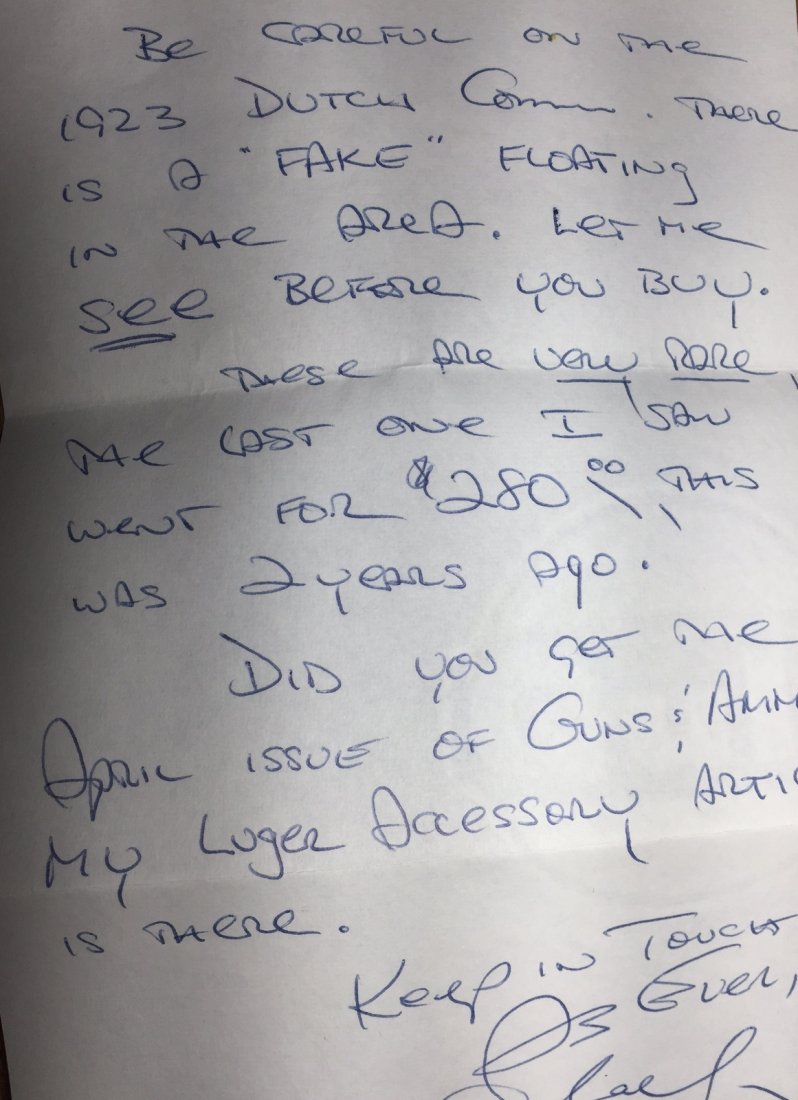 Be careful on the
1923 Dutch Comm. There
is a "FAKE" floating
in the area. Let me
see before you buy.
These are very rare,
the last one I saw
went for $280.00, this
was 2 years ago.
Did you get the
April issue of Guns & Amm
my Luger Accessory Artic
is there.
Keep in Touch
As Ever,